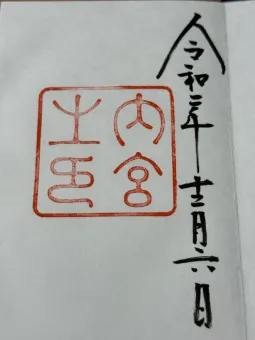 令和二年十二月六日
内宮
之印